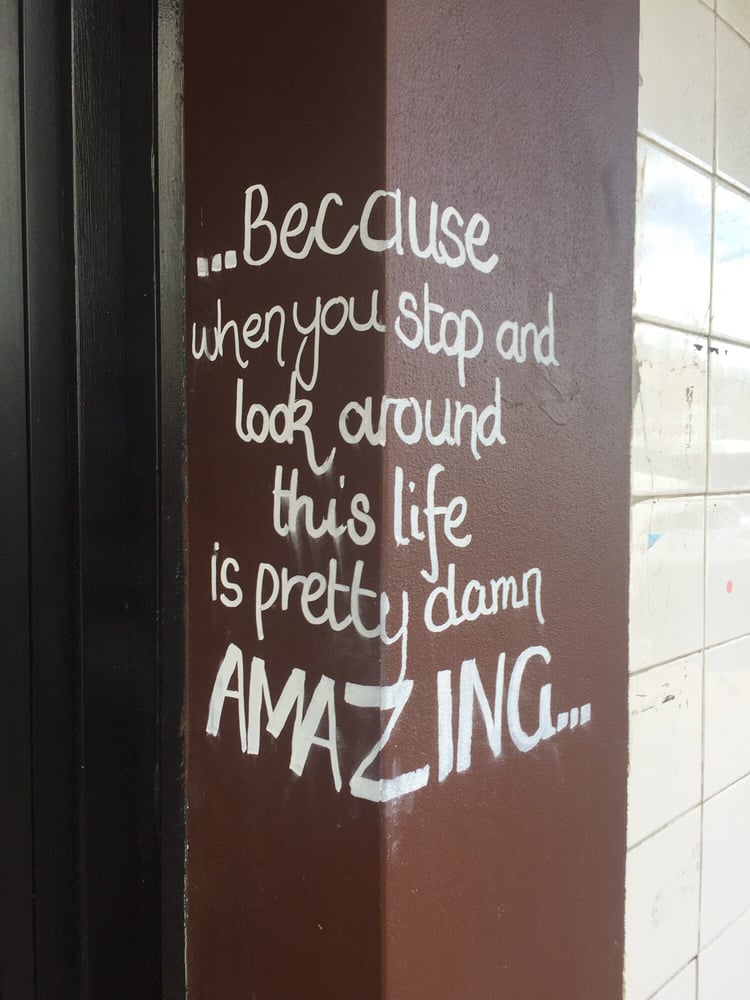 ...Because
when you stop and
look around
this life
is pretty damn
AMAZING...